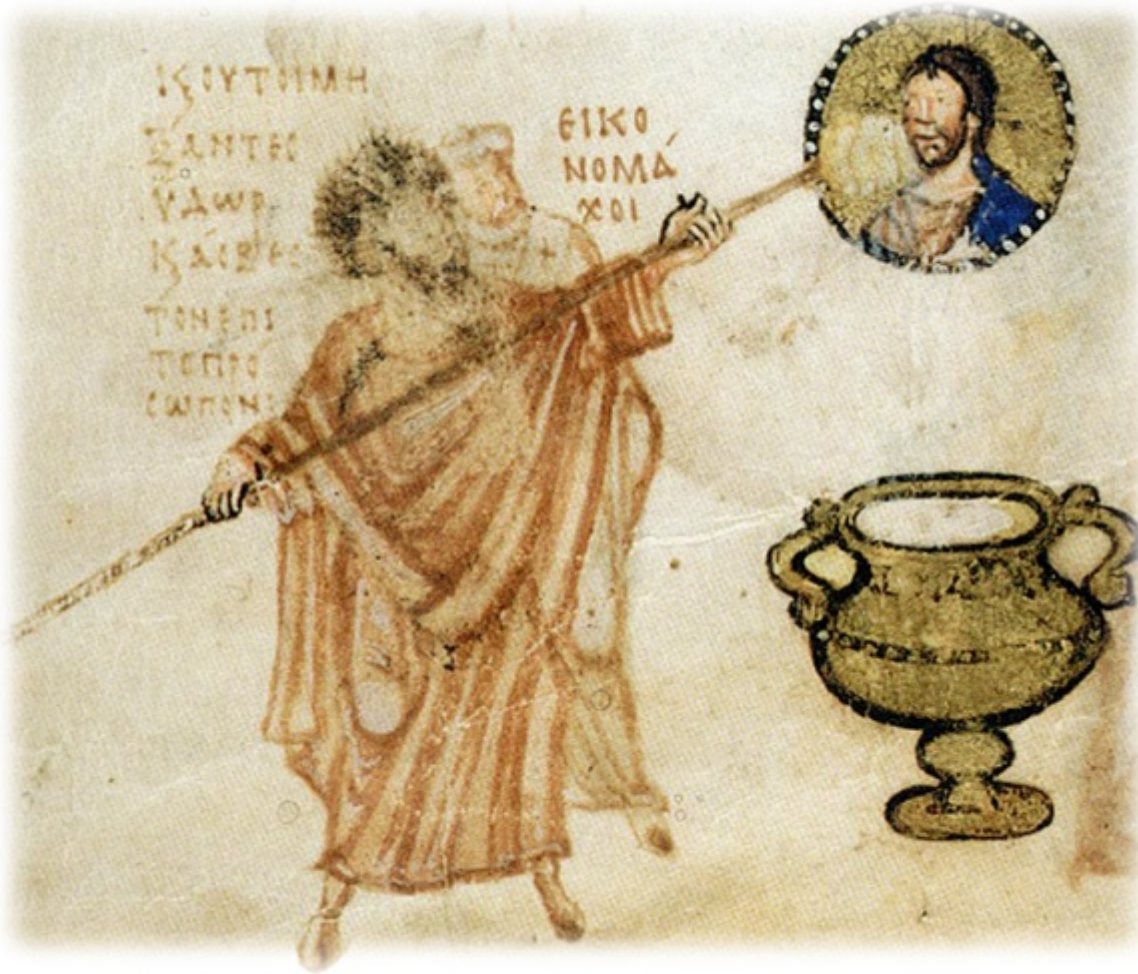 ϏΟΥΤΟΙΜΗ
ΞΑΝΤΕϹ
ΥΔΩΡ
ϏΆϹΒΕϹ
ΤΟΝΕΠΙ
ΤΟΠΡΌ
ϹΩΠΟΝ:
ΕΙΚΟ
ΝΟΜΆ
ΧΟΙ